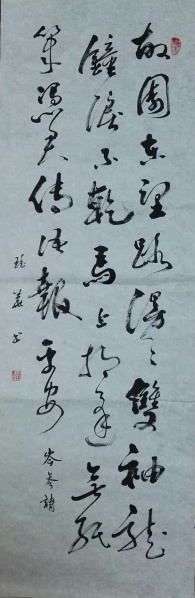 故園東望路漫漫雙袖龍
鐘淚不乾馬上相逢無紙
筆憑君傳語報平安
岑參詩